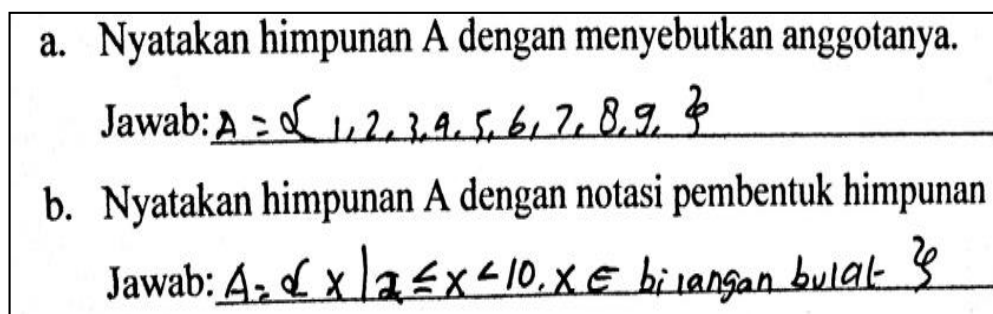 a. Nyatakan himpunan A dengan menyebutkan anggotanya.
Jawab: A = { 1, 2, 3, 4, 5, 6, 7, 8, 9, }
b. Nyatakan himpunan A dengan notasi pembentuk himpunan
Jawab: A = { x | 2 ≤ x < 10, x ∈ bilangan bulat }